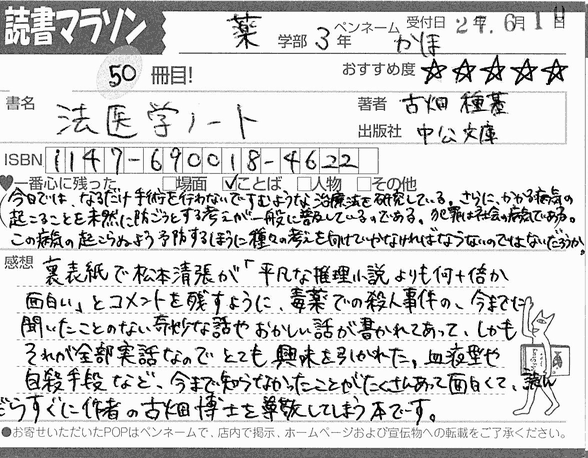 読書マラソン
薬 学部 3年 ペンネーム かほ 受付日 27年6月10日
50 冊目! おすすめ度 ☆☆☆☆☆
書名 法医学ノート 著者 古畑 種基
出版社 中公文庫
ISBN 1147-690018-4622
♥一番心に残った □場面 ☑ことば □人物 □その他
(今日では、なるだけ手術を行わないですむような治療法を研究している。さらに、かかる病気の
起こることを未然に防ごうとする考えが一般に普及しているのである。犯罪は社会の病気である。
この病気の起こらぬよう予防するほうに種々の考えを向けていかなければならないのではないだろうか。
感想 裏表紙で松本清張が「平凡な推理小説よりも何十倍か
面白い」とコメントを残すように、毒薬での殺人事件の、今までに
聞いたことのない奇妙な話やおかしい話が書かれてあって、しかも
それが全部実話なのでとても興味を引かれた。血液型や
自殺手段など、今まで知らなかったことがたくさんあって面白くて、読んだ
らすぐに作者の古畑博士を尊敬してしまう本です。
●お寄せいただいたPOPはペンネームで、店内で掲示、ホームページおよび宣伝物への転載をご了承ください。